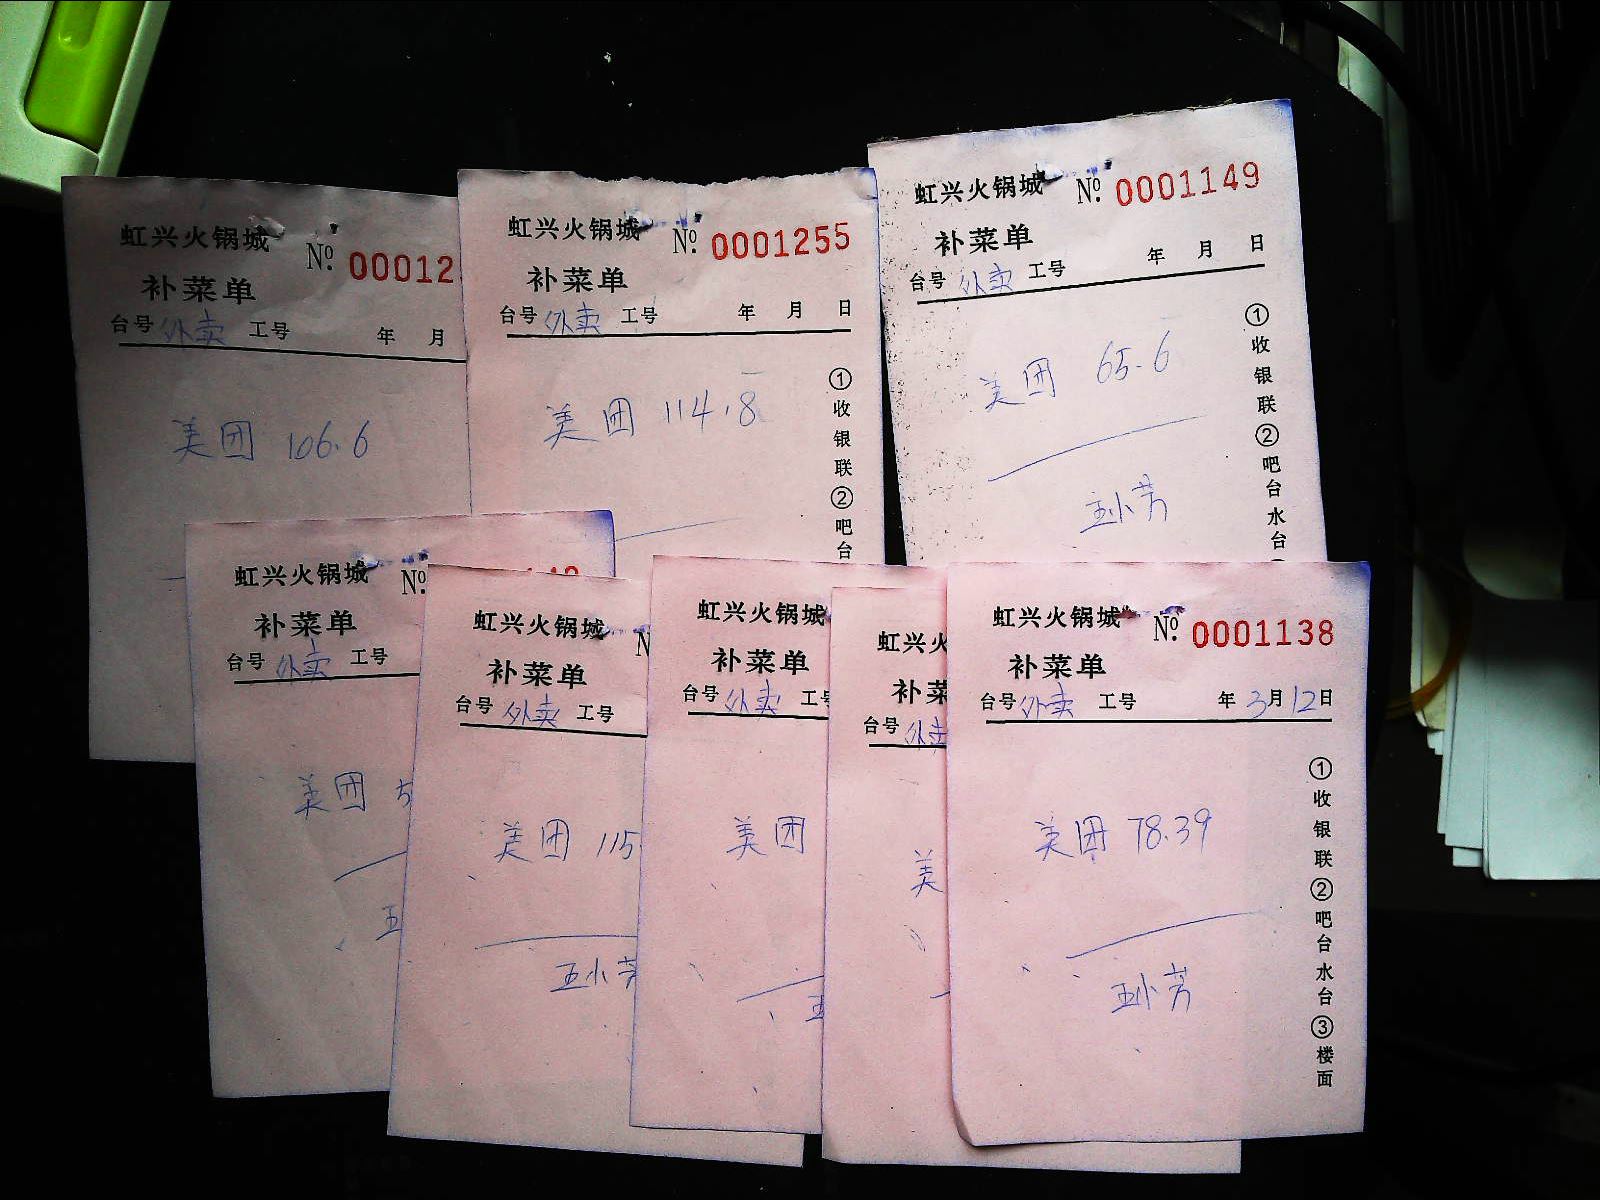 虹兴火锅城 № 00012
补菜单
台号 外卖 工号 年 月
美团 106.6
虹兴火锅城 № 0001255
补菜单
台号 外卖 工号 年 月 日
美团 114.8
①收银联②吧台
虹兴火锅城 № 0001149
补菜单
台号 外卖 工号 年 月 日
美团 65.6
王小芳
①收银联②吧台水台
虹兴火锅城 №
补菜单
台号 外卖 工号
美团 5
王
虹兴火锅城
补菜单
台号 外卖 工号
美团 115
王小芳
虹兴火锅城
补菜单
台号 外卖 工号
美团
王
虹兴火
补菜
台号 外卖
美
虹兴火锅城 № 0001138
补菜单
台号 外卖 工号 年 3月12日
美团 78.39
王小芳
①收银联②吧台水台③楼面